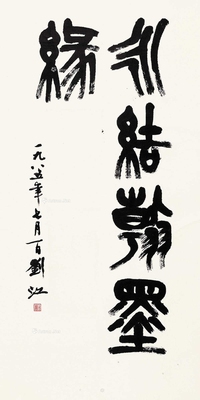 永结翰墨
緣
一九八五年七月一日劉江